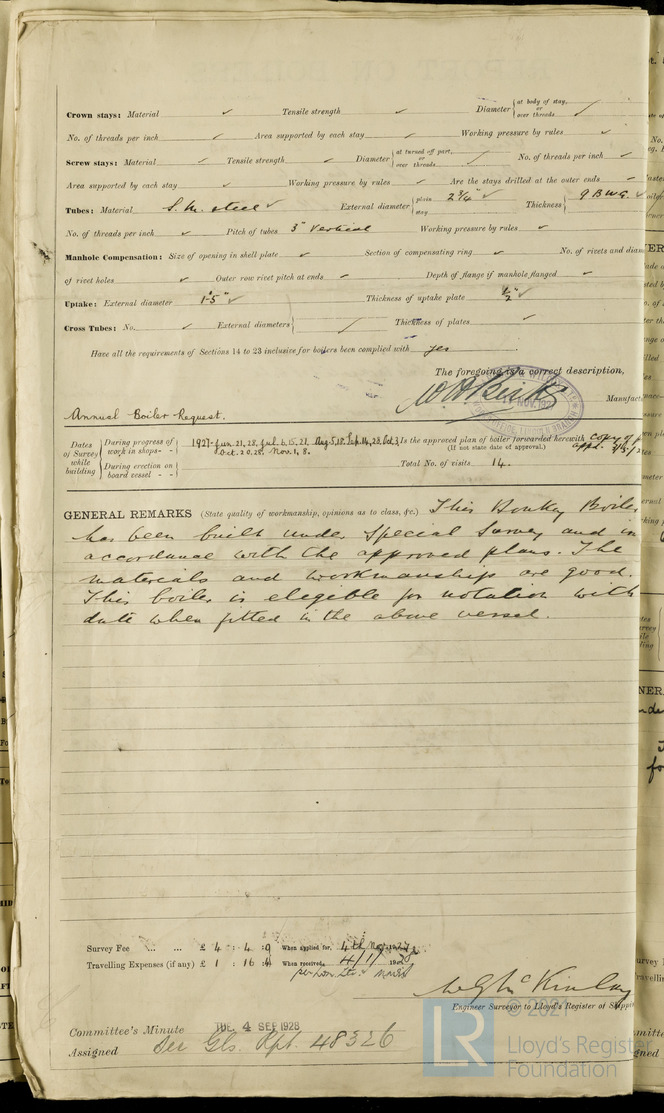 Crown stays: Material ✓ Tensile strength ✓ Diameter { at body of stay, or over threads
No. of threads per inch ✓ Area supported by each stay ✓ Working pressure by rules ✓
Screw stays: Material ✓ Tensile strength ✓ Diameter { at turned off part, or over threads No. of threads per inch ✓
Area supported by each stay ✓ Working pressure by rules ✓ Are the stays drilled at the outer ends ✓
Tubes: Material S. M. steel ✓ External diameter { plain 2 3/4" ✓ stay Thickness { 9 B.W.G. ✓
No. of threads per inch ✓ Pitch of tubes 3" Vertical Working pressure by rules ✓
Manhole Compensation: Size of opening in shell plate ✓ Section of compensating ring ✓ No. of rivets and diam
of rivet holes ✓ Outer row rivet pitch at ends ✓ Depth of flange if manhole flanged ✓
Uptake: External diameter 1'-5" ✓ Thickness of uptake plate 1/2" ✓
Cross Tubes: No. ✓ External diameters { Thickness of plates ✓
Have all the requirements of Sections 14 to 23 inclusive for boilers been complied with yes
The foregoing is a correct description,
Manufact
Annual Boiler Request.
Dates of Survey while building { During progress of work in shops - - 1927- Jun. 21, 28, Jul. 6, 15, 21, Aug. 5, 18, Sep. 14, 23, Oct. 3, Oct. 20. 28. Nov. 1, 8. Is the approved plan of boiler forwarded herewith copy of
(If not state date of approval.)
During erection on board vessel - - Total No. of visits 14.
GENERAL REMARKS (State quality of workmanship, opinions as to class, &c.) This Donkey Boiler
has been built under Special Survey and in
accordance with the approved plans. The
materials and workmanship are good.
This boiler is elegeble for notation with
date when fitted in the above vessel.
Survey Fee ... ... £ 4 : 4 : 0 When applied for,
Travelling Expenses (if any) £ 1 : 16 : When received, 4/1/
W G McKinlay
Engineer Surveyor to Lloyd's Register of Shippi
Committee's Minute TUE. 4 SEP 1928
Assigned See Gls. Rpt. 48326
© 2021
LR
Lloyd's Register
Foundation